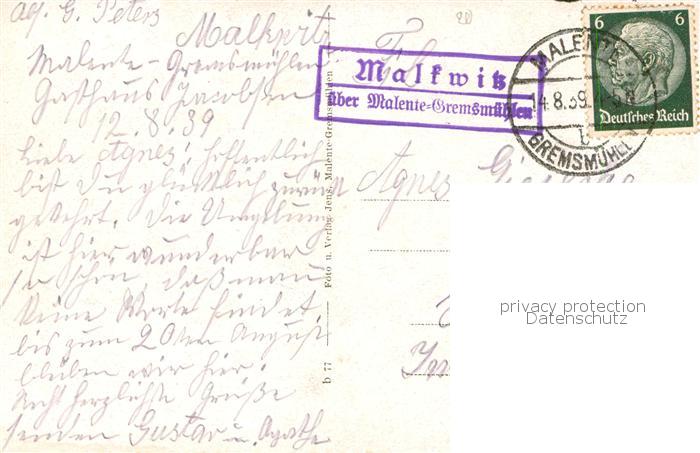 Abs. G. Peters
Malkwitz
Malente-Gremsmühlen
Gasthaus Jacobsen
12.8.39
Liebe Agnes! Hoffentlich
bist Du glücklich zurück
gekehrt. Die Umgebung
ist hier wunderbar
so schön, daß man
keine Worte findet.
bis zum 20ten August
bleiben wir hier.
Recht herzlichste Grüße
senden Gustav u. Agathe
Foto u. Verlag Jens, Malente-Gremsmühlen
b 77
Malkwitz
über Malente-Gremsmühlen
MALENTE
14.8.39
b
GREMSMÜHLEN
6 6
Deutsches Reich
Agnes
privacy protection
Datenschutz